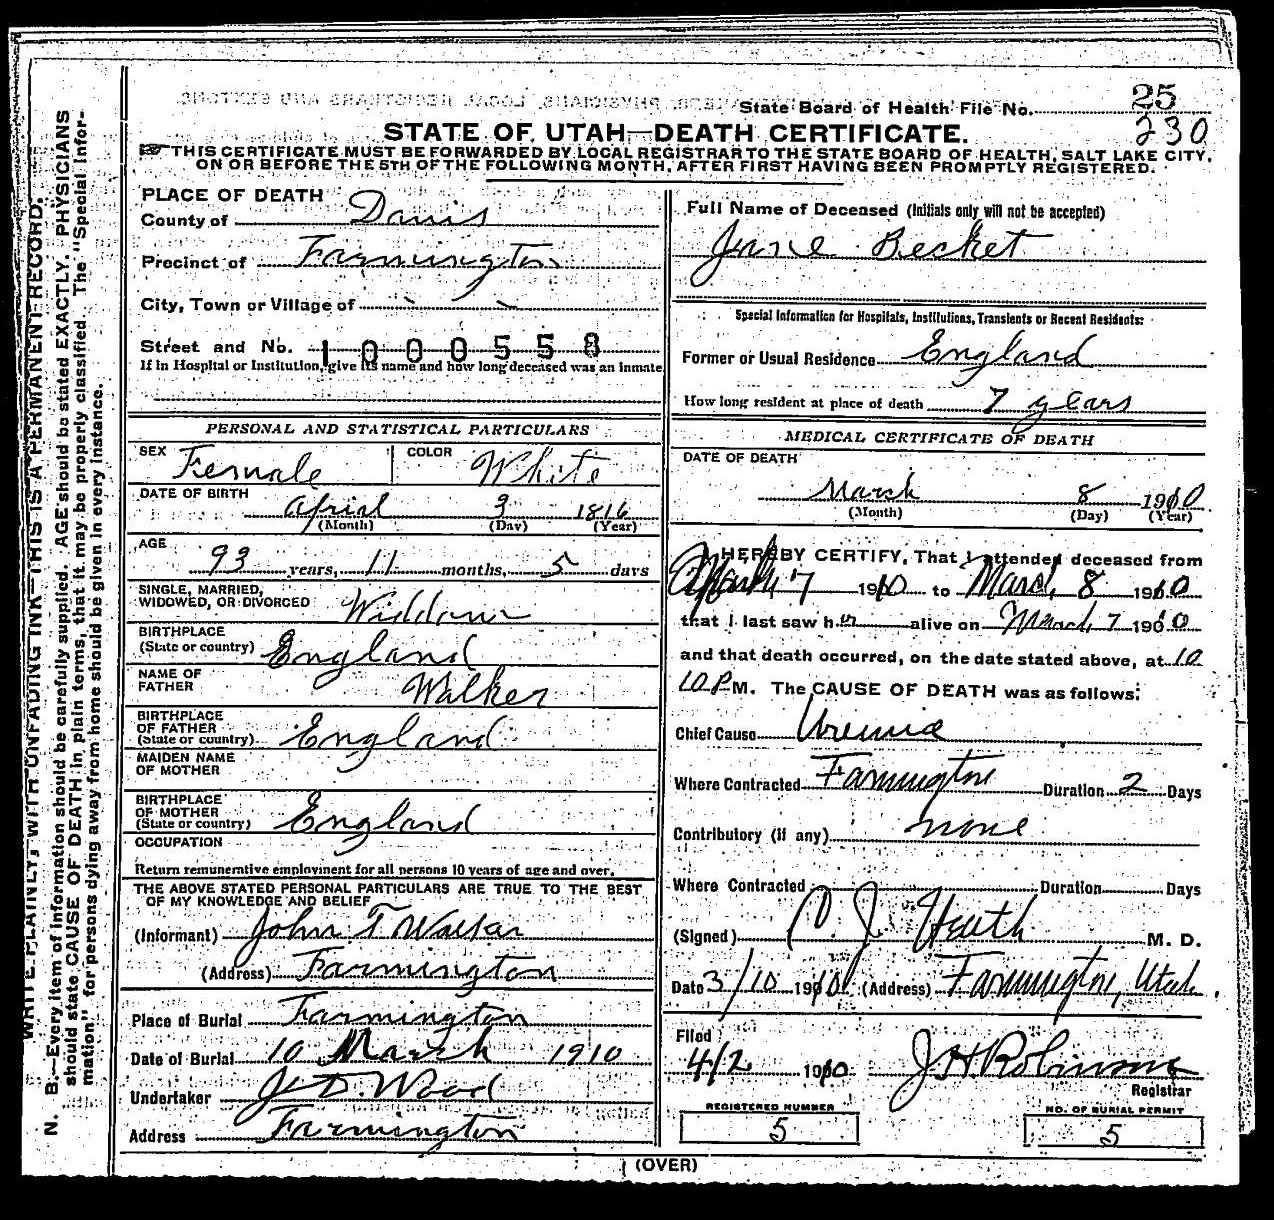 State Board of Health File No. 25
230
STATE OF UTAH—DEATH CERTIFICATE.
THIS CERTIFICATE MUST BE FORWARDED BY LOCAL REGISTRAR TO THE STATE BOARD OF HEALTH, SALT LAKE CITY,
ON OR BEFORE THE 5TH OF THE FOLLOWING MONTH, AFTER FIRST HAVING BEEN PROMPTLY REGISTERED.
WRITE PLAINLY, WITH UNFADING INK—THIS IS A PERMANENT RECORD.
N. B.—Every item of information should be carefully supplied. AGE should be stated EXACTLY. PHYSICIANS
should state CAUSE OF DEATH in plain terms, that it may be properly classified. The "Special Infor-
mation" for persons dying away from home should be given in every instance.
PLACE OF DEATH
County of Davis
Precinct of Farmington
City, Town or Village of
Street and No. 1000558
If in Hospital or Institution, give its name and how long deceased was an inmate
PERSONAL AND STATISTICAL PARTICULARS
SEX Female COLOR White
DATE OF BIRTH
Aprial 3 1816
(Month) (Day) (Year)
AGE
93 years, 11 months, 5 days
SINGLE, MARRIED,
WIDOWED, OR DIVORCED Widdow
BIRTHPLACE
(State or country) England
NAME OF
FATHER Walker
BIRTHPLACE
OF FATHER
(State or country) England
MAIDEN NAME
OF MOTHER
BIRTHPLACE
OF MOTHER
(State or country) England
OCCUPATION
Return remunerative employment for all persons 10 years of age and over.
THE ABOVE STATED PERSONAL PARTICULARS ARE TRUE TO THE BEST
OF MY KNOWLEDGE AND BELIEF
(Informant) John T Walker
(Address) Farmington
Place of Burial Farmington
Date of Burial 10 March 1910
Undertaker J. D. Wood
Address Farmington
Full Name of Deceased (Initials only will not be accepted)
Jane Becket
Special Information for Hospitals, Institutions, Transients or Recent Residents:
Former or Usual Residence England
How long resident at place of death 7 years
MEDICAL CERTIFICATE OF DEATH
DATE OF DEATH
March 8 1910
(Month) (Day) (Year)
I HEREBY CERTIFY, That I attended deceased from
March 7 1910 to March 8 1910
that I last saw her alive on March 7 1910
and that death occurred, on the date stated above, at 10
10 P M. The CAUSE OF DEATH was as follows:
Chief Cause Uremia
Where Contracted Farmington Duration 2 Days
Contributory (if any) none
Where Contracted Duration Days
(Signed) C. J. Heath M. D.
Date 3/10 1910 (Address) Farmington, Utah.
Filed
4/2 1910 J. H. Robinson
Registrar
REGISTERED NUMBER
5
NO. OF BURIAL PERMIT
5
(OVER)